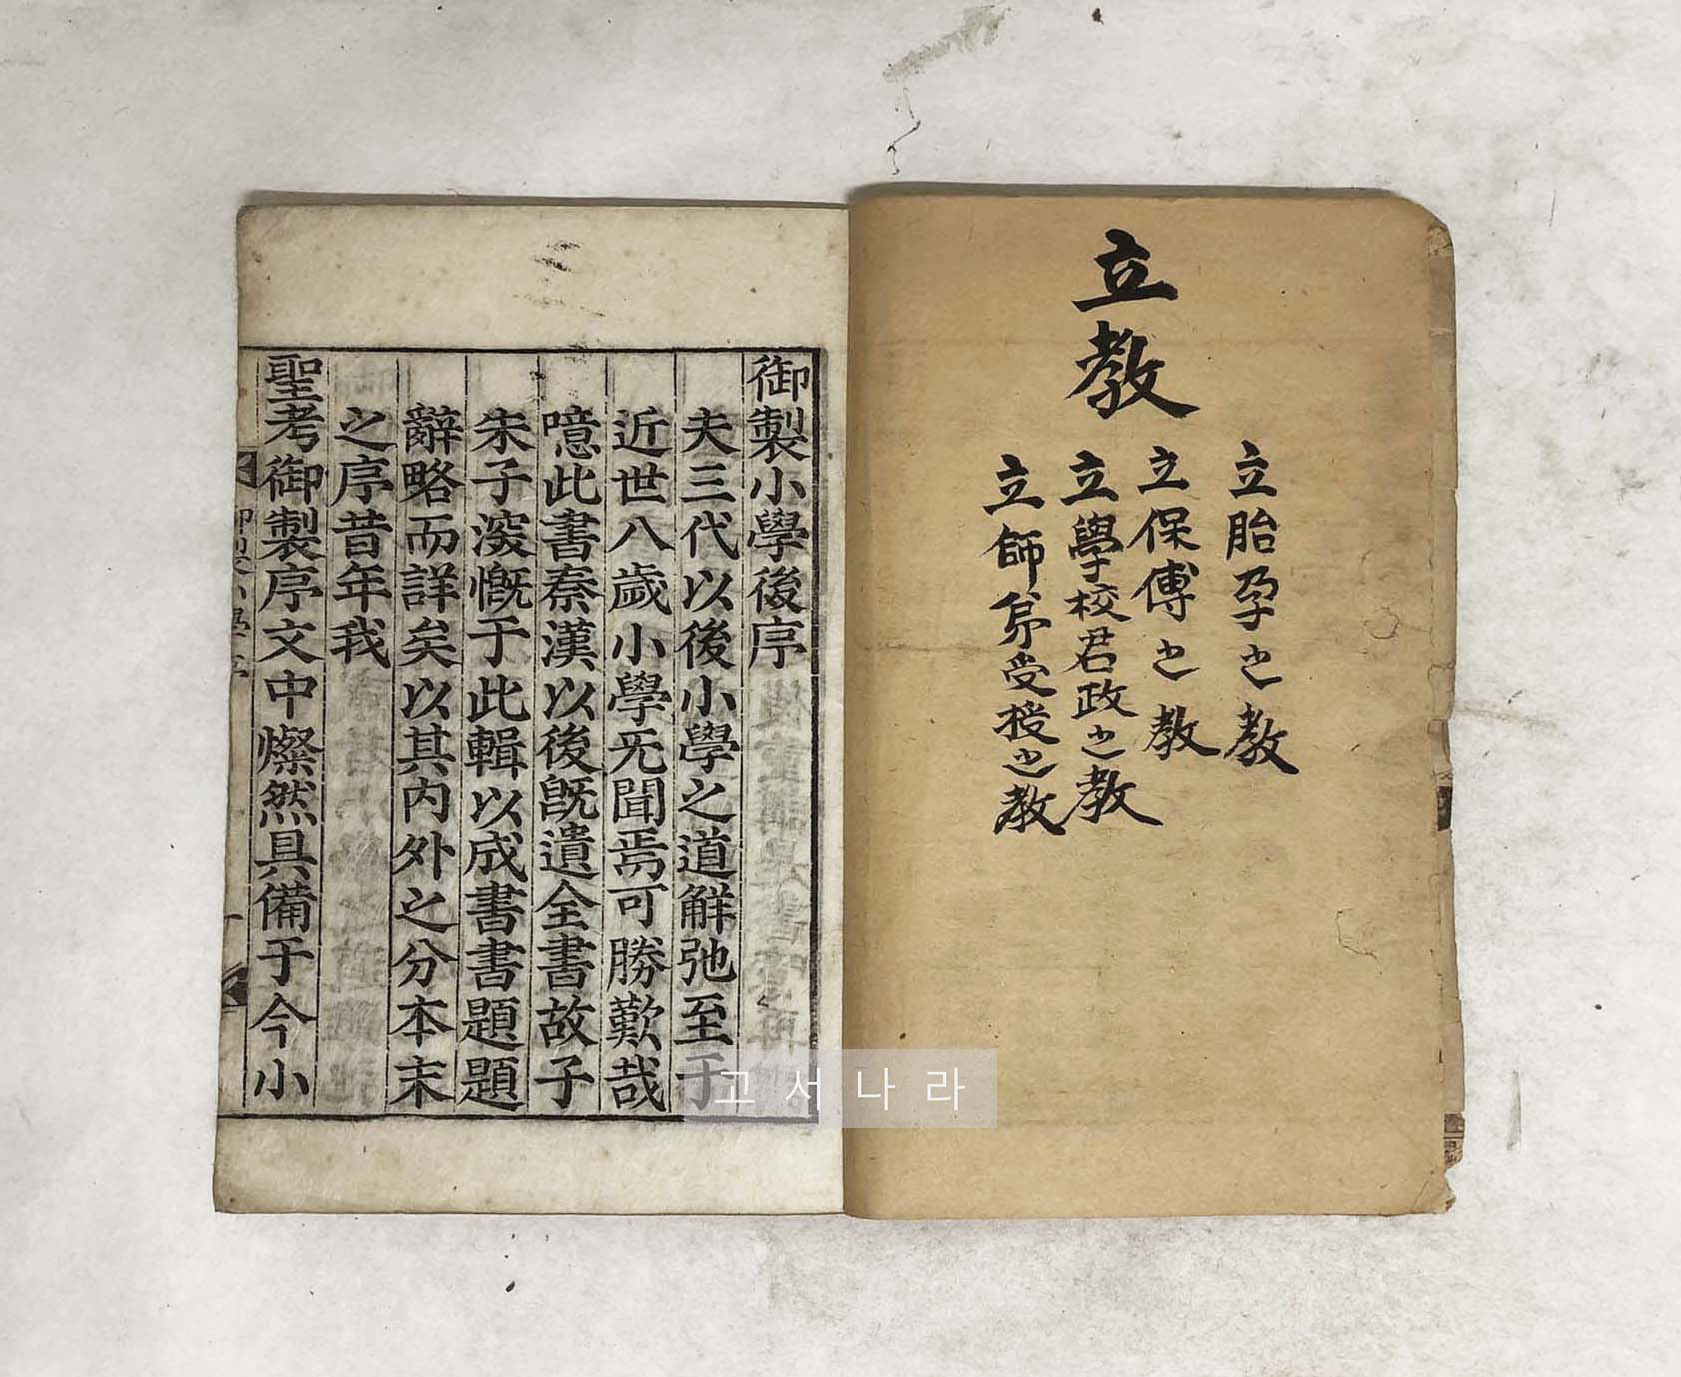 立教
立胎孕之教
立保傅之教
立學校君政之教
立師弟受授之教
御製小學後序
夫三代以後小學之道解弛至于
近世八歲小學旡聞焉可勝歎哉
噫此書秦漢以後旣遺全書故子
朱子深慨于此輯以成書書題題
辭略而詳矣以其內外之分本末
之序昔年我
聖考御製序文中燦然具備于今小
고서나라